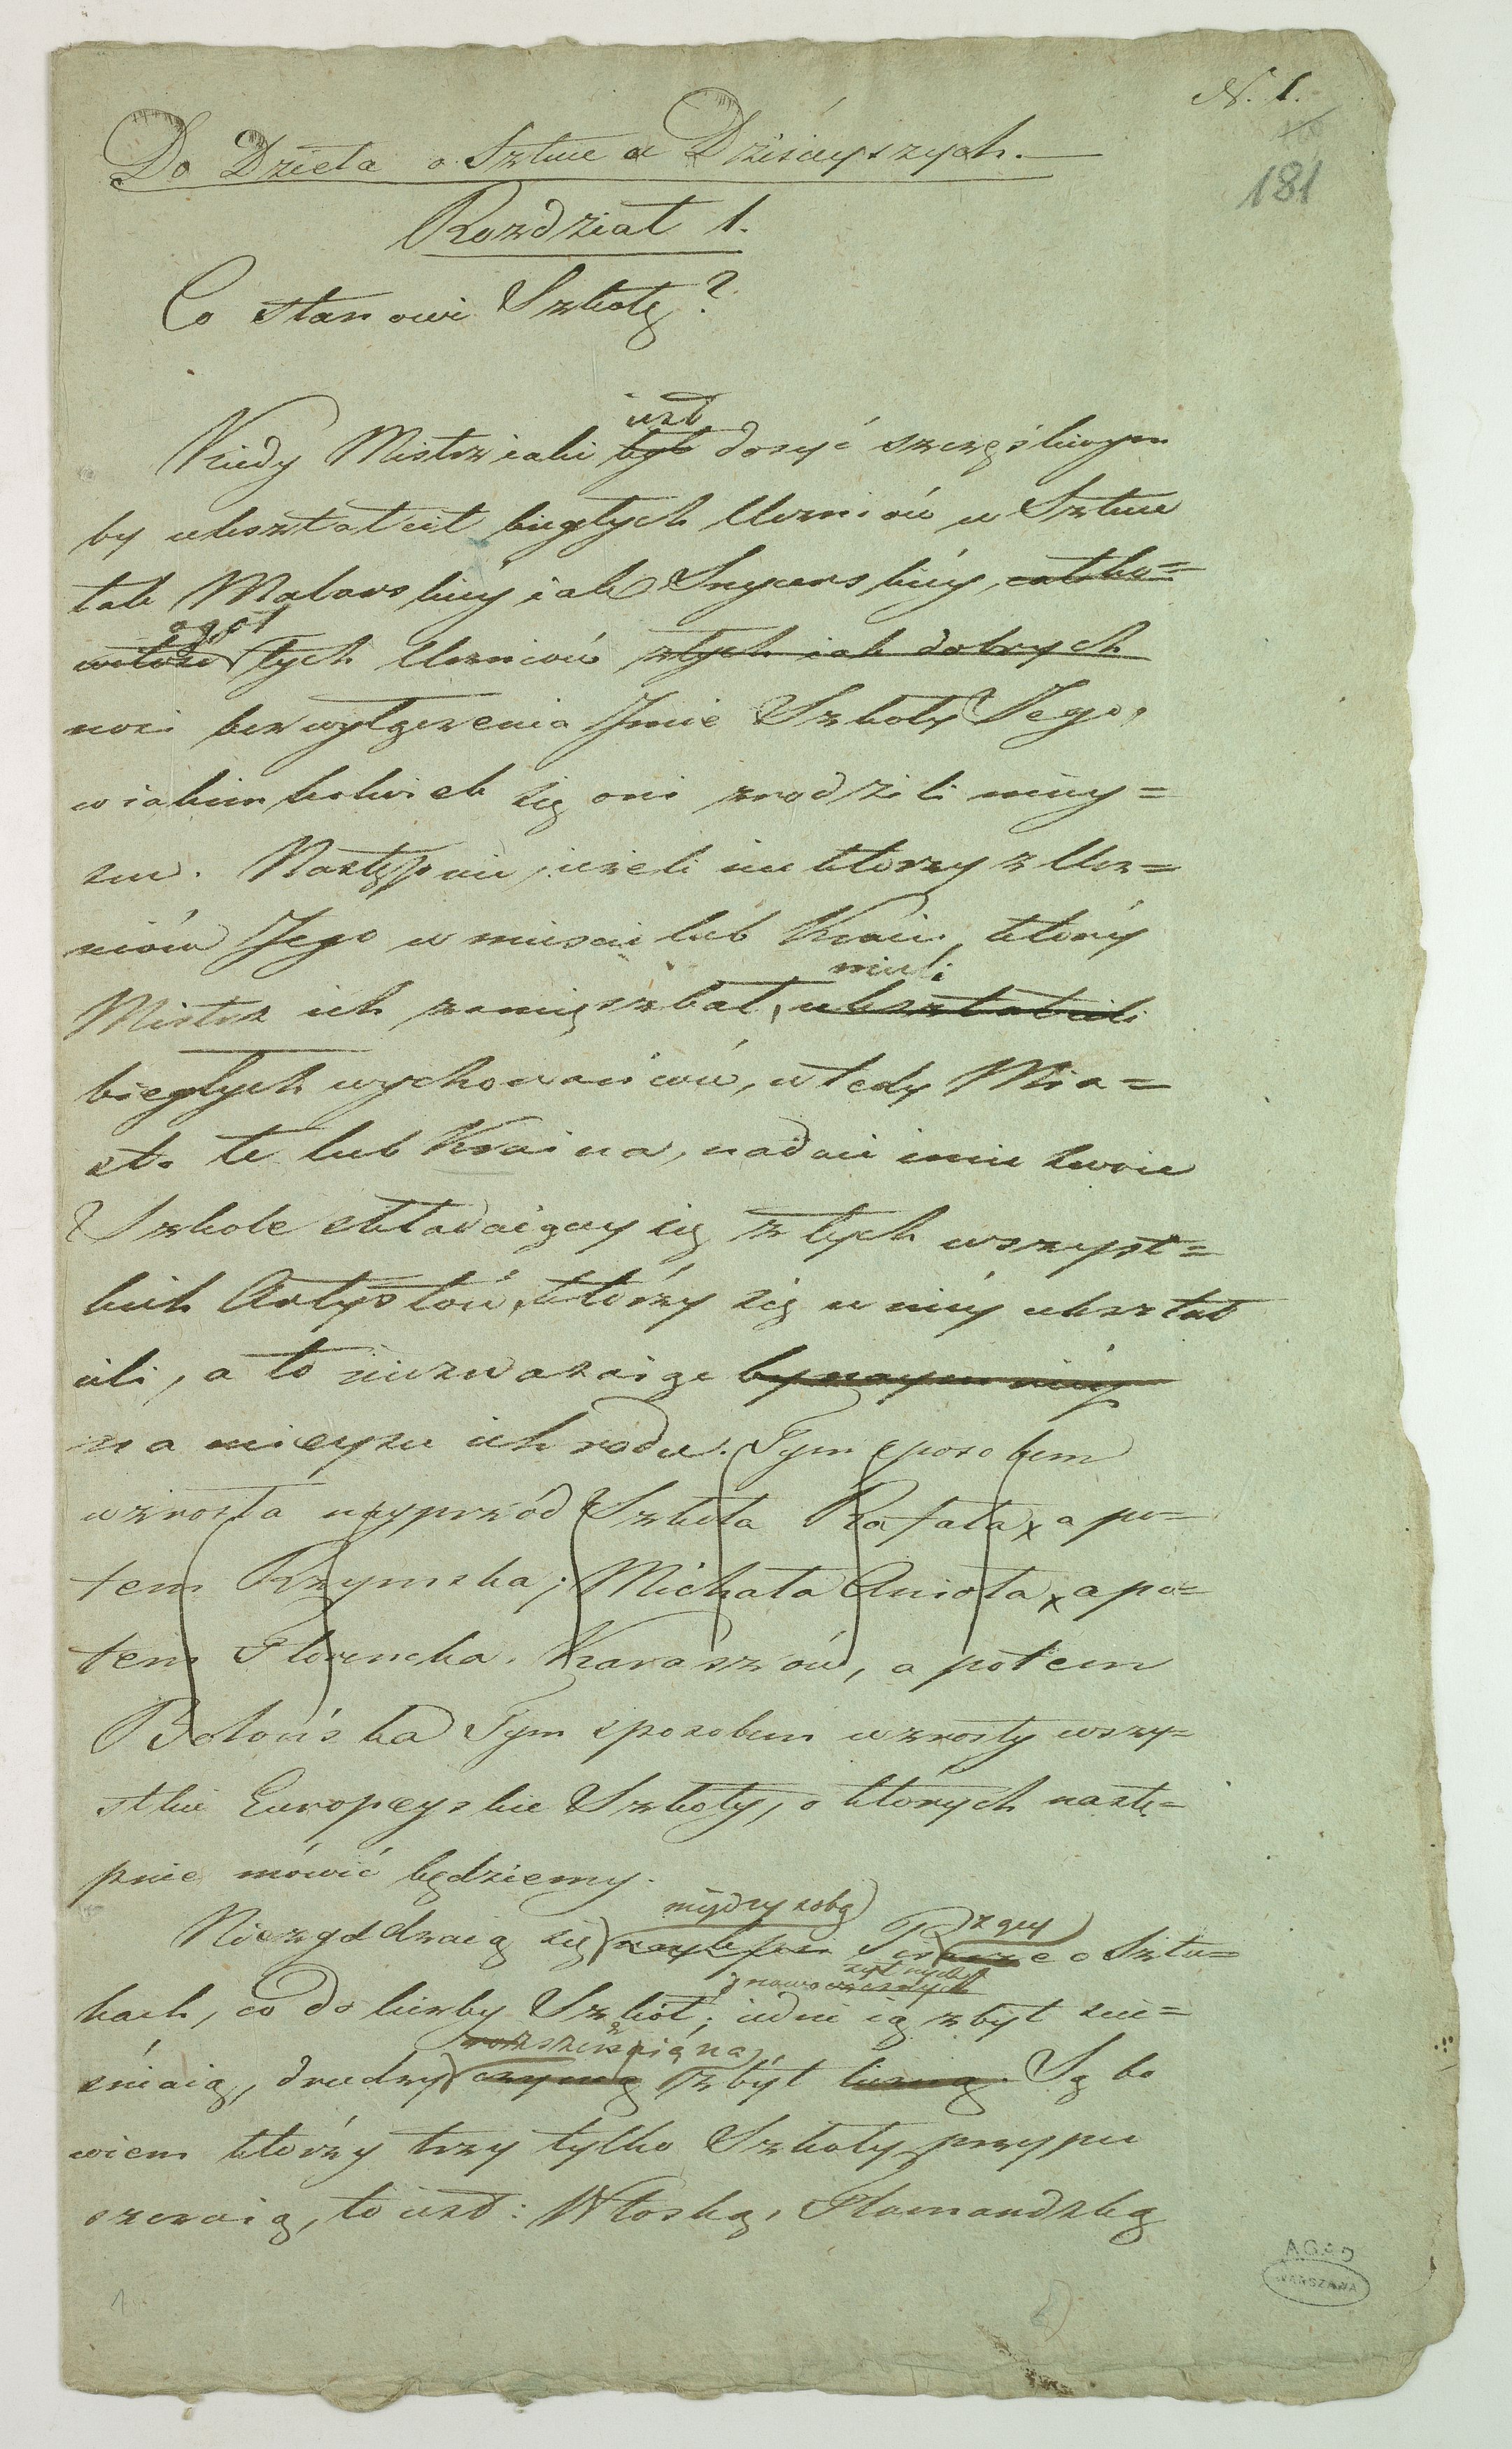 N. 1.
181
Do Dzieła o Sztuce a Dzisieyszych.
Rozdział 1.
Co stanowi Szkołę?
iest
Kiedy Mistrz iaki był dosyć szczęśliwym
by ukształcił biegłych Uczniów w Sztuce
tak Malarskiéy iak Snycerskiéy, całko=
ogół
witość tych Uczniów złych iak dobrych
nosi bez wyłączenia Imie Szkoły Jego,
w iakimkolwiek się oni zrodzili miey=
scu. Następnie, ieżeli niektorzy z Ucz=
niów Jego w mieście lub Kraiu, który
mieli
Mistrz ich zamięszkał, ukształcili
biegłych wychowańców, wtedy Mia=
sto te lub Kraina, nadaie imie swoie
Szkole składaiącey się z tych wszyst=
kich Artystów, którzy się w niéy ukształ
cili, a to niezważaiąc bynaymniéy
na mieysce ich rodu. Tym sposobem
wzrosła nayprzód Szkoła Rafała x a po=
tem Rzymska; Michała Anioła x a po=
tem Florencka. Karaszów, a potem
Bolońska Tym sposobem wzrosły wszy=
stkie Europeyskie Szkoły, o których nastę=
pnie mówić będziemy.
między sobą
Niezgadzaią się naylepsi Pisarze o Sztu=
kach, co do liczby Szkół; iedni ią zbyt ście=
śniaią, drudzy czynią zbyt liczną. Są bo
wiem którzy trzy tylko Szkoły przypu
szczaią, to iest: Włoską, Flamandzką
1
AGAD
WARSZAWA